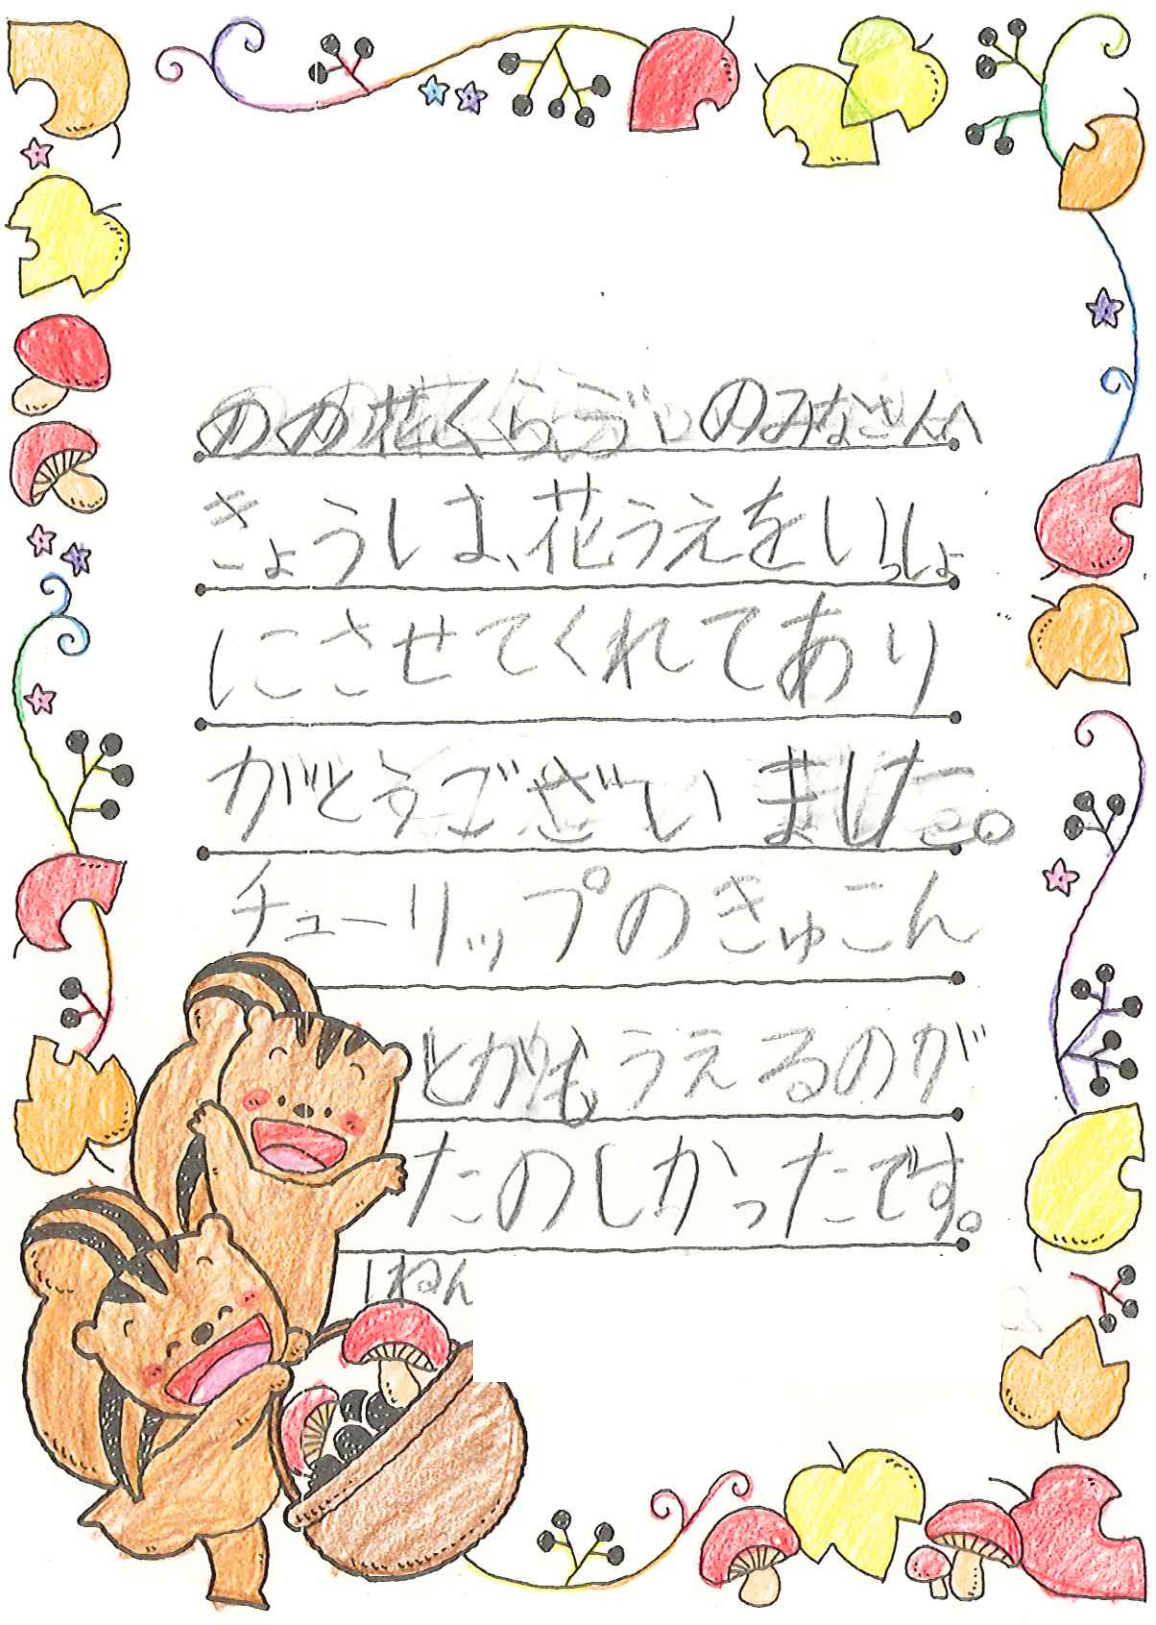 のの花くらぶのみなさんへ
きょうは、花うえをいっしょ
にさせてくれてあり
がとうございました。
チューリップのきゅこん
とかもうえるのが
たのしかったです。
1ねん